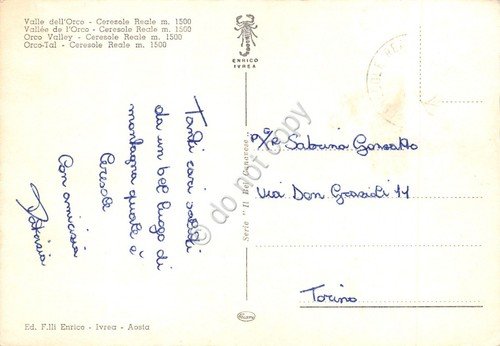 Valle dell'Orco - Ceresole Reale m. 1500
Vallée de l'Orco - Ceresole Reale m. 1500
Orco Valley - Ceresole Reale m. 1500
Orco-Tal - Ceresole Reale m. 1500
ENRICO
IVREA
Tanti cari saluti
da un bel luogo di
montagna quale è
Ceresole
Con amicizia
Patrizia
Serie "Il Bel Canavese"
Sabrina
Via Don Grazioli 11
Torino
Ed. F.lli Enrico - Ivrea - Aosta
do not copy